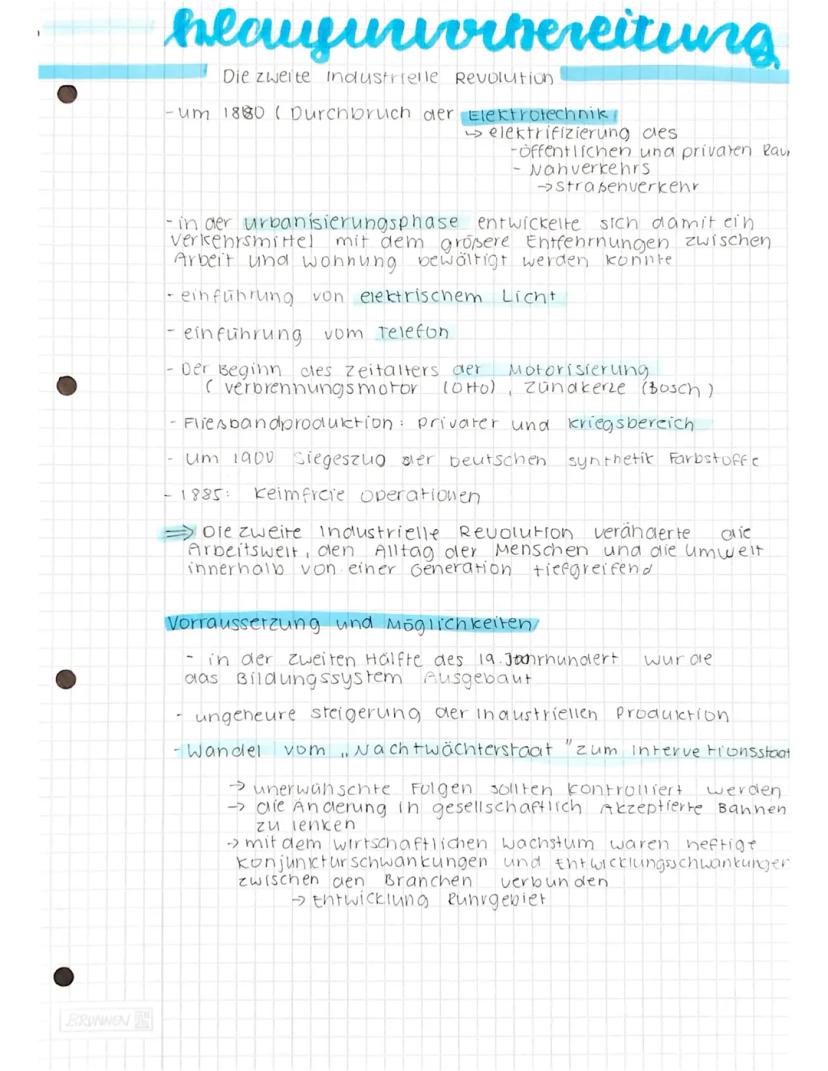 klausurvorbereitung
Die zweite Industrielle Revolution
- um 1880 ( Durchbruch der Elektrotechnik)
↳ elektrifizierung des
- öffentlichen und privaten Rau
- Nahverkehrs
→ straßenverkehr
- in der urbanisierungsphase entwickelte sich damit ein
verkehrsmittel mit dem größere Entfehrnungen zwischen
Arbeit und wohnung bewältigt werden konnte
- einführung von elektrischem Licht
- einführung vom Telefon
- Der Beginn des zeitalters der Motorisierung
( verbrennungsmotor (Otto), zündkerze (Bosch)
- Fliesbandproduktion: privater und kriegsbereich
- um 1900 Siegeszug der Deutschen synthetik Farbstoffe
- 1885: Keimfreie operationen
⇒ Die zweite Industrielle Revolution veränderte die
Arbeitswelt, den Alltag der Menschen und die umwelt
innerhalb von einer Generation tiefgreifend
Vorraussetzung und Möglichkeiten
- in der zweiten Hälfte des 19. Jahrhundert wurde
das Bildungssystem Ausgebaut
- ungeheure steigerung der industriellen Produktion
- Wandel vom „Nachtwächterstaat" zum Intervetionsstaat
→ unerwünschte Folgen sollten kontrolliert werden
→ die Änderung in gesellschaftlich Akzeptierte Bahnen
zu lenken
→ mit dem wirtschaftlichen wachstum waren heftige
konjunkturschwankungen und Entwicklungsschwankungen
zwischen den Branchen verbunden
→ Entwicklung Ruhrgebiet
BRUNNEN